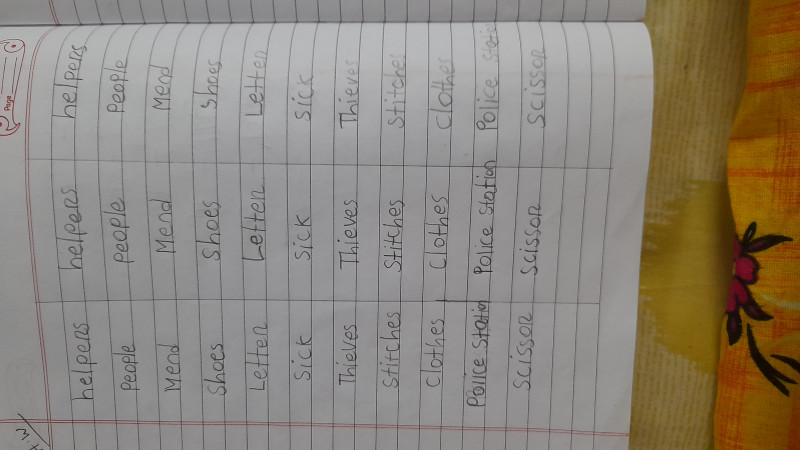 H.W
Page
helpers helpers helpers
People people People
Mend Mend Mend
Shoes Shoes Shoes
Letter Letter Letter
Sick Sick Sick
Thieves Thieves Thieves
Stitches Stitches Stitches
Clothes Clothes Clothes
Police Station Police Station Police Station
Scissor Scissor Scissor